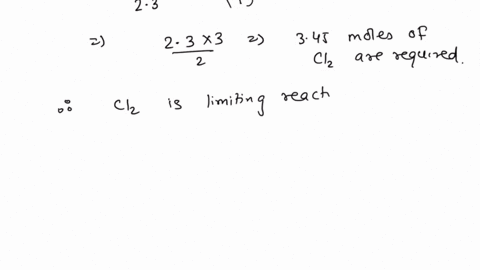 2.3 (?)
=> 2.3 x 3 / 2 => 3.45 moles of
Cl2 are required.
∴ Cl2 is limiting reach